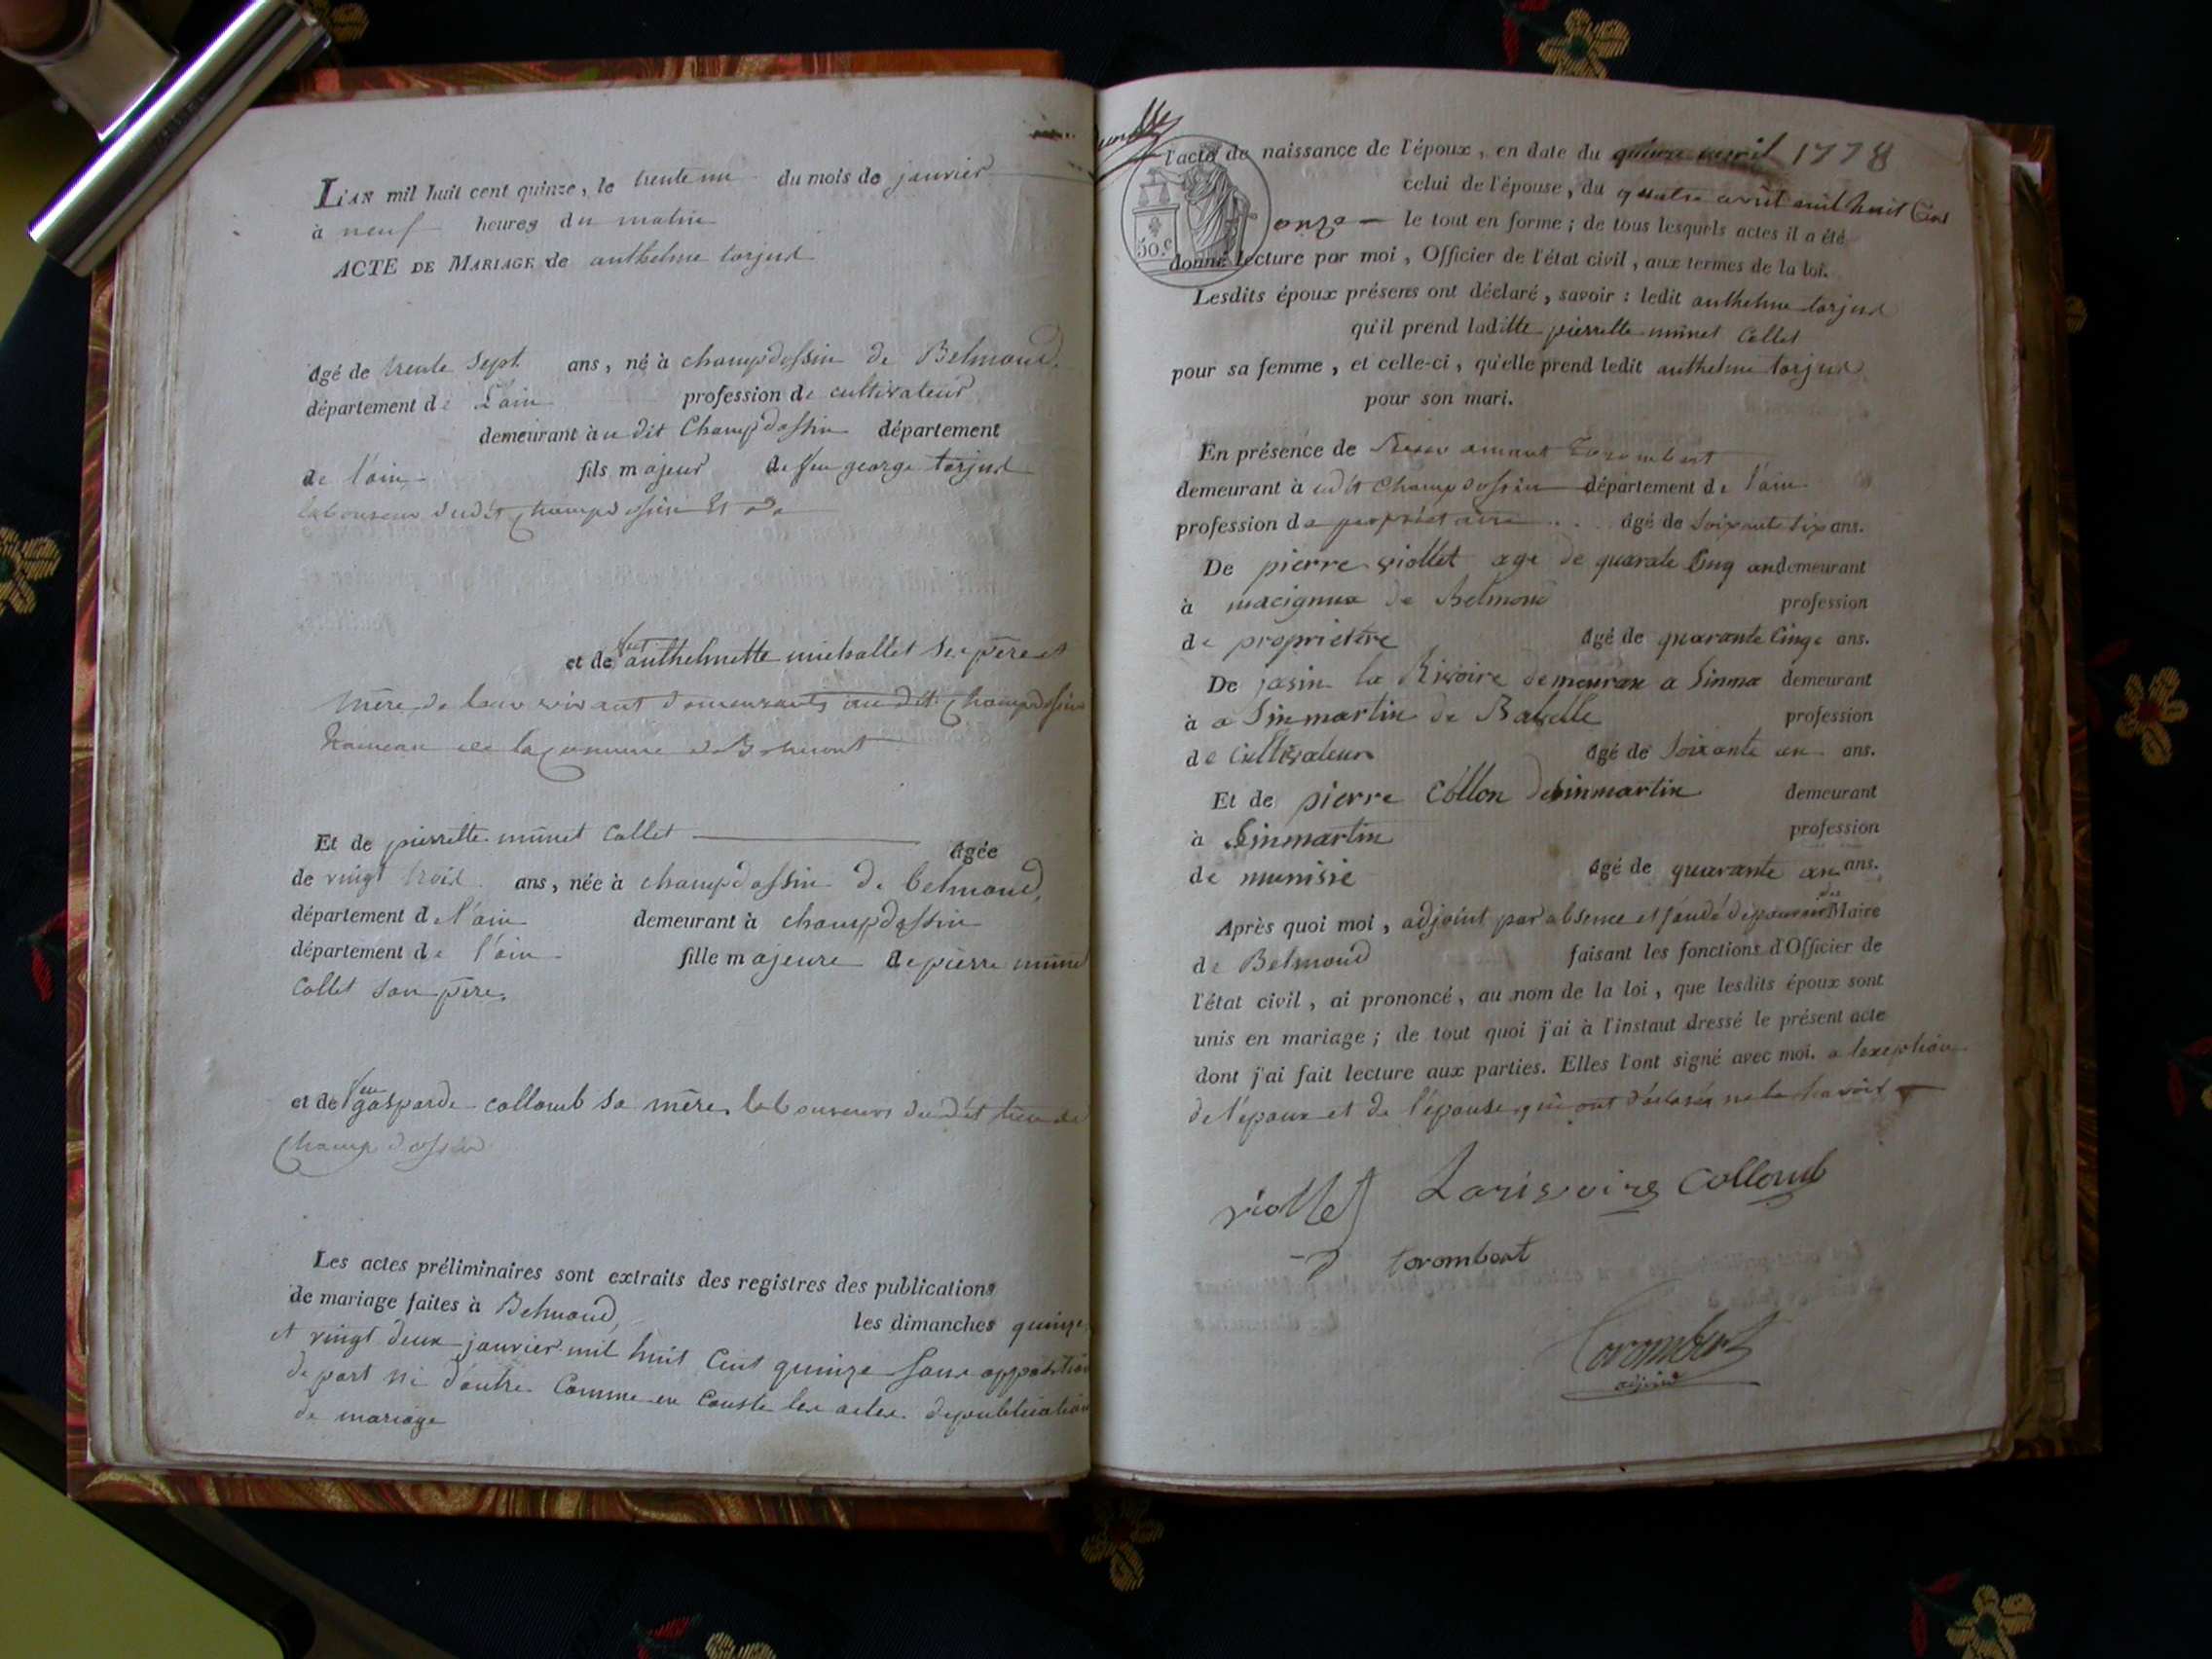 L'AN mil huit cent quinze, le trente un du mois de janvier
à neuf heures du matin
ACTE DE MARIAGE de anthelme torjud
âgé de trente sept ans, né à champdossin de Belmond,
département de L'ain profession de cultivateur
demeurant àu dit Champdossin département
de l'ain fils majeur de feu george torjud
laboureur dudit champdossin Et de
et de feu anthelmette michallet ses père et
mère de leur vivant demeurants au dit Champdossin
hameau de la commune de Belmont
Et de pierrette münet Collet âgée
de vingt trois ans, née à champdossin de belmond,
département de l'ain demeurant à champdossin
département de l'ain fille majeure de pierre münet
Collet son père,
et de feu gasparde collomb sa mère, laboureurs dudit lieu de
Champdossin
Les actes préliminaires sont extraits des registres des publications
de mariage faites à Belmond, les dimanches quinze
et vingt deux janvier mil huit Cent quinze sans opposition
de part ni d'autre Comme en Conste les actes de publication
de mariage
l'acte de naissance de l'époux, en date du quinze avril 1778
celui de l'épouse, du quatre avril mil huit Cent
onze le tout en forme ; de tous lesquels actes il a été
50.c
donné lecture par moi, Officier de l'état civil, aux termes de la loi.
Lesdits époux présens ont déclaré, savoir : ledit anthelme torjud
qu'il prend laditte pierrette münet Collet
pour sa femme, et celle-ci, qu'elle prend ledit anthelme torjud
pour son mari.
En présence de amant Corombert
demeurant à udit Champdossin département de l'ain
profession de propriétaire âgé de soixante six ans.
De pierre viollet age de quarate Cinq an demeurant
à macignux de Belmond profession
de proprietere âgé de quarante Cinqe ans.
De jasin la Rivoire demeuran a Sinma demeurant
à a Sinmartin de Bavelle profession
de Cultivateur âgé de soixante an ans.
Et de pierre Collon desinmartin demeurant
à Sinmartin profession
de munisie âgé de quarante an ans.
Après quoi moi, adjoint par absence et faude de pouvoir du Maire
de Belmond faisant les fonctions d'Officier de
l'état civil, ai prononcé, au nom de la loi, que lesdits époux sont
unis en mariage ; de tout quoi j'ai à l'instaut dressé le présent acte
dont j'ai fait lecture aux parties. Elles l'ont signé avec moi. a lexeption
de l'epoux et de l'épouse qui ont déclarés ne le savoir
viollet Larivoire Collomb
Corombert
Corombert
adjoint